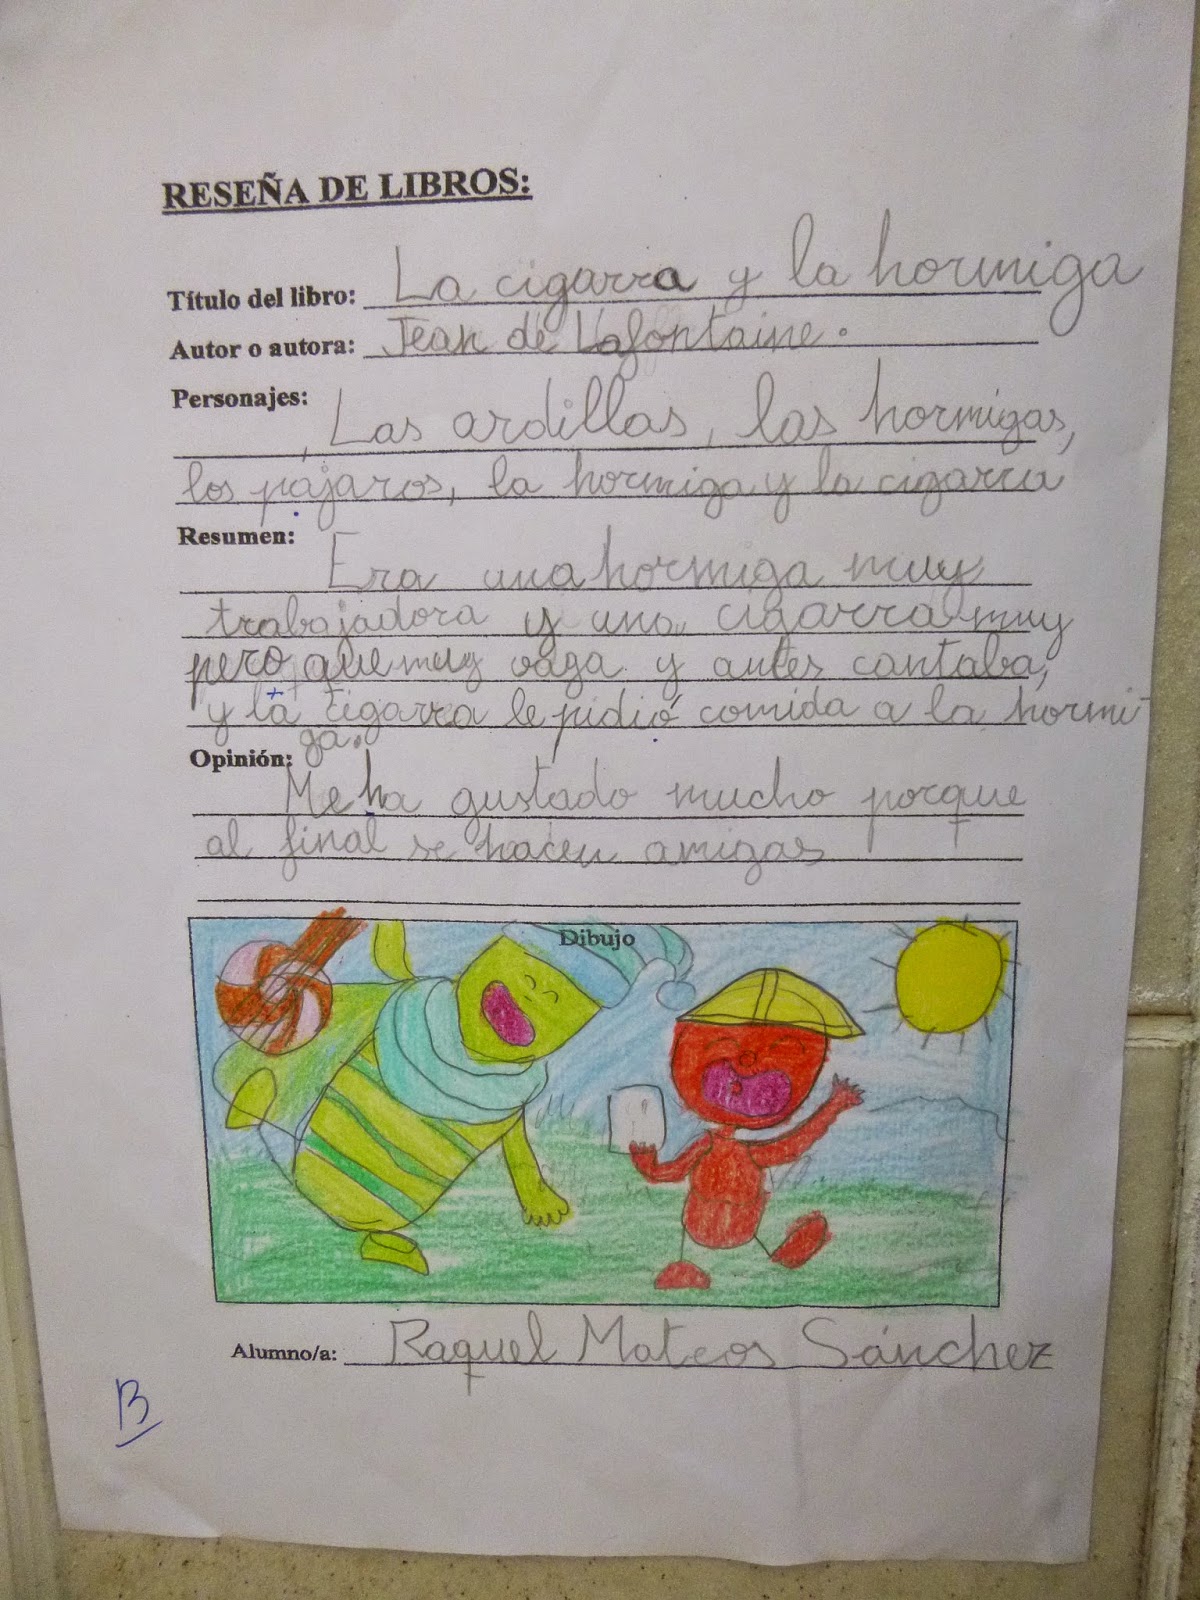 RESEÑA DE LIBROS:
Título del libro: La cigarra y la hormiga
Autor o autora: Jean de Lafontaine.
Personajes:
, Las ardillas, las hormigas,
los pájaros, la hormiga y la cigarra
Resumen: Era una hormiga muy
trabajadora y una cigarra muy
pero que muy vaga y antes cantaba,
y la cigarra le pidió comida a la hormi-
ga.
Opinión:
Me ha gustado mucho porque
al final se hacen amigas
Dibujo
Alumno/a: Raquel Mateos Sánchez
B